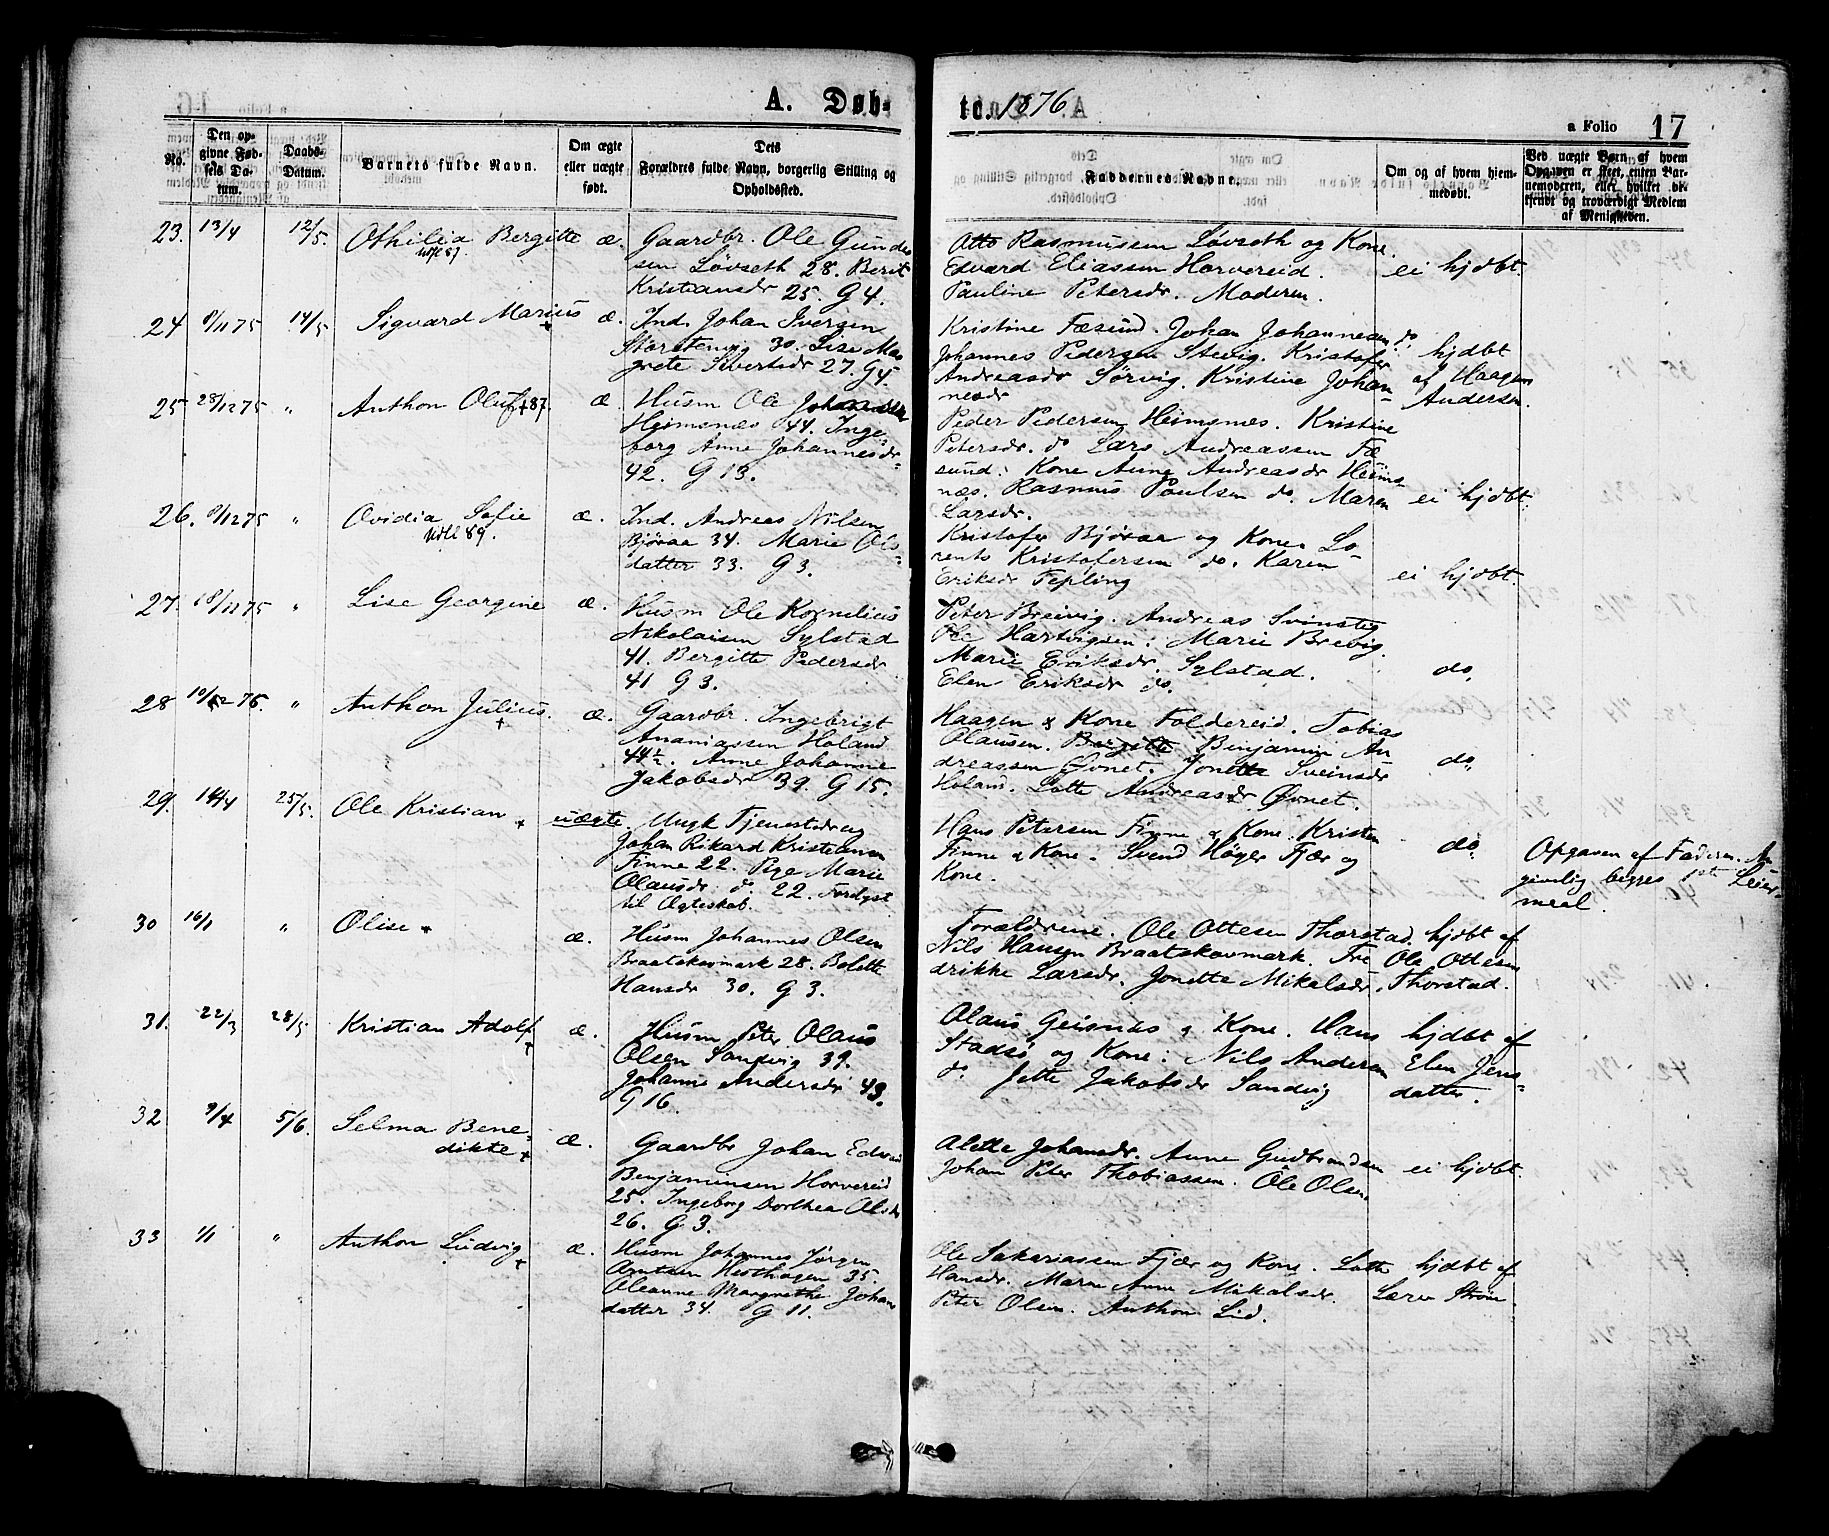 A. Døb-
te. 1876
a Folio 17
No.
Den op-
givne Fød-
sels Da-
tum.
Daabs-
Datum.
Barnets fulde Navn.
Om ægte
eller uægte
født.
Dets
Forældres fulde Navn, borgerlig Stilling og
Opholdssted.
Faddernes Navne.
Om og af hvem hjem-
medøbt.
Ved uægte Børn af hvem
Opgaven er skeet, enten Bar-
nemoderen, eller hvilket be-
kjendt og troværdigt Medlem
af Menigheden.
23. 13/4 12/5. Othilia Bergitte æ. Gaardbr. Ole Gunder
sen Løvseth 28. Berit
Kristiansdr 25. G 4.
Otto Rasmussen Løvseth og Kone.
Edvard Eliassen Horvereid.
Pauline Petersdr. Moderen.
ei hjdbt
24 14/5 Sigvard Marius æ. Ind. Johan Iversen
30. Lise Mar
grete Sivertsdr 27. G 4.
Kristine Fæsund. Johan Johannesen do
Johannes Pedersen Stevig. Kristofer
Andreasdr Sørvig. Kristine Johan-
nesdr
hjdbt
af Haagen
Andersen.
25 28/12 75 " Anthon Oluf +87. æ. Husm Ole
Heimsnæs 44. Inge-
borg Anne Johannesdr
42. G 13.
Peder Pedersen Heimsnes. Kristine
Petersdr. do Lars Andreassen Fæ
sund: Kone Anne Andreasdr Heims
næs. Rasmus Paulsen do. Maren
Larsdr.
ei hjdbt.
26. 75 " Ovidia Sofie æ. Ind. Andreas Nilsen
89.
Bjøraa 34. Marie Ols-
datter 33. G 3.
Kristofer Bjøraa og Kone. Lo-
rents Kristofersen do. Karen
Eriksdr Fepling
ei hjdbt.
27. 18/12 75 " Lise Georgine æ. Husm Ole Kornelius
Nikolaisen Sylstad
41. Bergitte Pedersdr
41 G 3.
Peter Breivig. Andreas Svinsteg
Ole Hartvigsen: Marie Brevig.
Marie Eriksdr. Sylstad.
Elen Eriksdr do.
do.
28 " Anthon Julius. + æ. Gaardbr. Ingebrigt
Ananiassen Holand
44½. Anne Johanne
Jakobsdr 39. G 15.
Haagen & Kone Foldereid. Tobias
Olausen. Benjamin An
dreassen Øvnet. Jonette Sveinsdr
Holand. Lotte Andreasdr Øvnet.
do.
29. 14/4 25/5. Ole Kristian + uægte Ungk Tjenestedreng
Johan Rikard Kristiansen
Finne 22. Pige Marie
Olausdr do. 22. Fordgst
til Ægteskab.
Hans Petersen Finne & Kone. Kristen
Finne & Kone. Svend Høyer Fjær og
Kone.
do.
Opgaven af Faderen. An
givelig begges 1ste Leier
maal.
30 16/1 " Olise + æ. Husm Johannes Olsen
Braatskovmark 28. Bolette
Hansdr 30. G 3.
Forældrene. Ole Ottesen Thorstad.
Nils Hansen Braatskovmark. Fre
drikke Larsdr. Jonette Mikalsdr.
hjdbt af
Ole Ottesen
Thorstad.
31. 22/3 28/5 Kristian Adolf + æ. Husm Peter Olaus
Olsen Sandvig 39.
Johanne Andersdr 43.
G 16.
Olaus Geisnæs & Kone. Hans
Stadsø og Kone: Nils Andersen
do. Jette Jakobsdr Sandvig
hjdbt af
Elen Jens-
datter.
32 9/4 5/6. Selma Bene-
dikte + æ. Gaardbr Johan Edvard
Benjaminsen Horvereid
25. Ingeborg Dorthea Olsdr
26. G 3.
Alette Johansdr. Anne Gudbrandsen
Johan Peter Thobiassen. Ole Olsen
ei hjdbt.
33 1/1 " Anthon Ludvig + æ. Husm Johannes Jørgen
Arntsen Hesthagen 35.
Oleanne Margrethe Johan
datter 34. G 11.
Ole Sakariassen Fjær og Kone. Lotte
Hansdr. Maren Anne Mikalsdr.
Peter Olsen. Anthon Lid.
hjdbt af
Lærer Strøm.